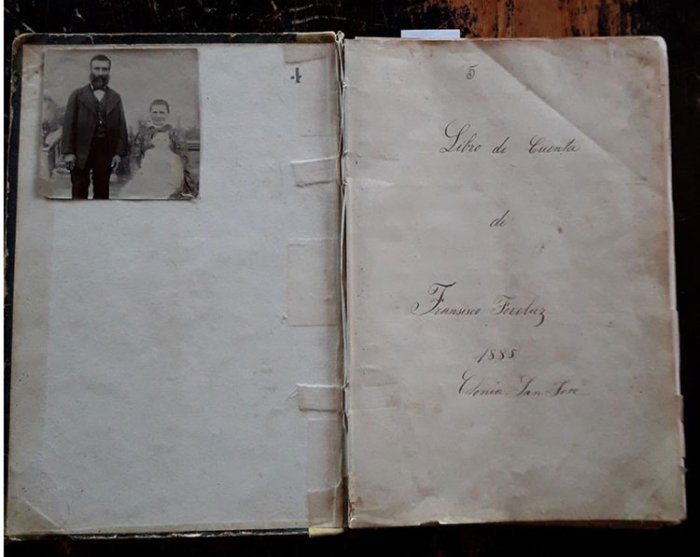 4
5
Libro de Cuenta
de
Fransisco
1888
Colonia San Jose